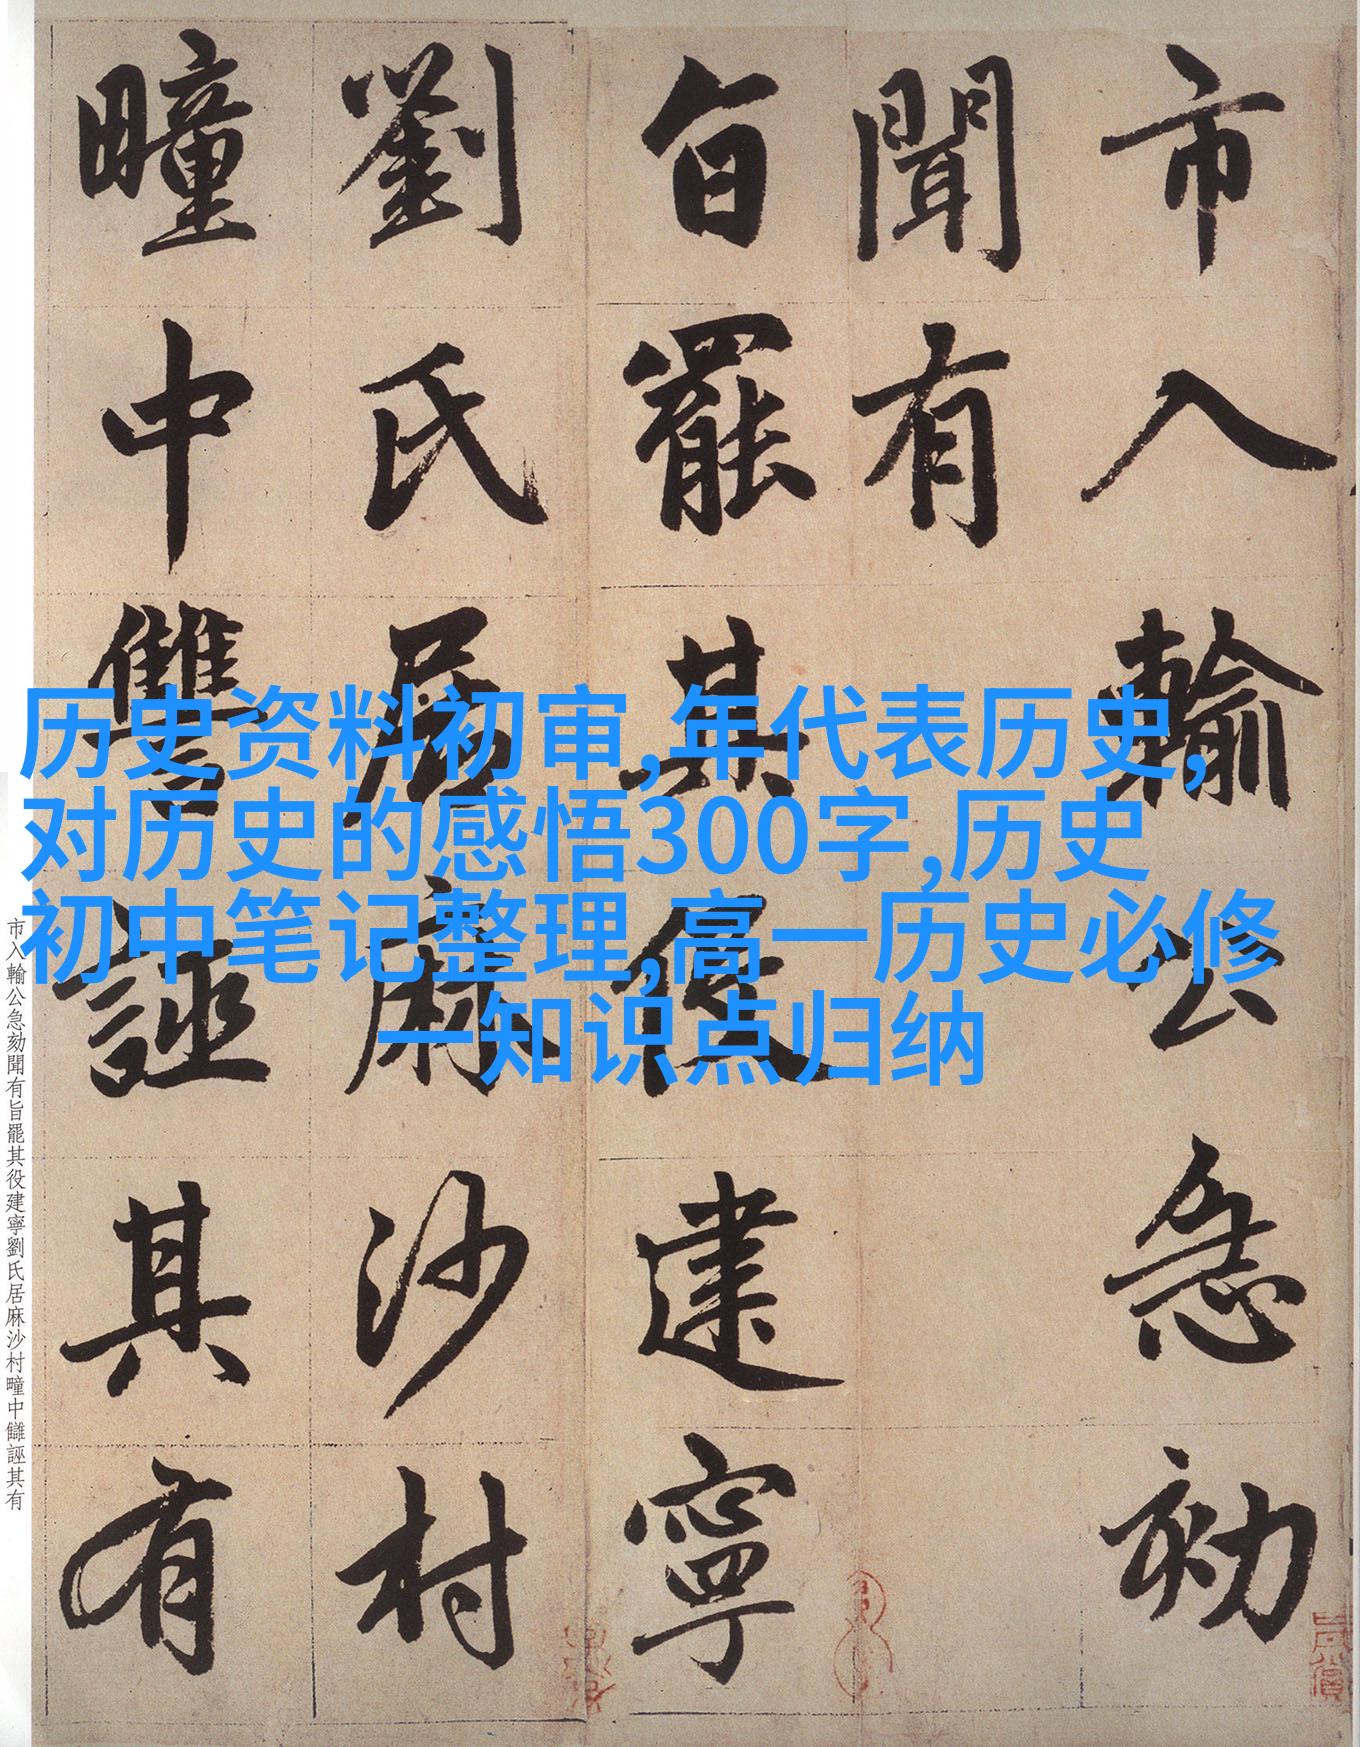 市入輸公急劾
聞有
旨罷其役建寧
劉氏居麻沙村
疃中讐誣其有
历史资料初审,年代表历史,
对历史的感悟300字,历史
初中笔记整理,高一历史必修
一知识点归纳
市入輸公急劾聞有旨罷其役建寧劉氏居麻沙村疃中讎誣其有